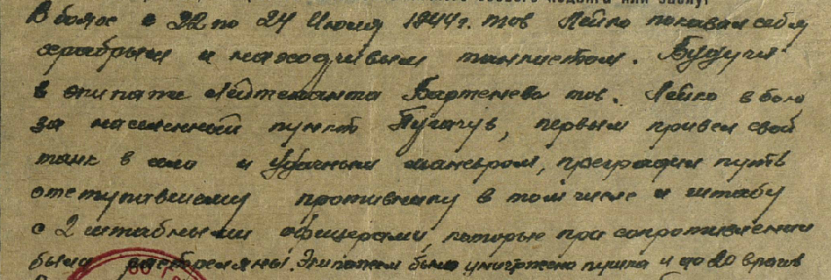 В боях с 22 по 24 Июля 1944г. тов Лейко показал себя
храбрым и находчивым танкистом. Будучи
в экипаже Лейтенанта Бартенева тов. Лейко в бою
за населенный пункт Пугачув, первым привел свой
танк в село и удачным маневром, преградил путь
отступавшему противнику в том числе и штабу
с 2 штабными офицерами, которые при сопротивлении
были растреляны. Экипажем было уничтожено пушка и до 20 врагов